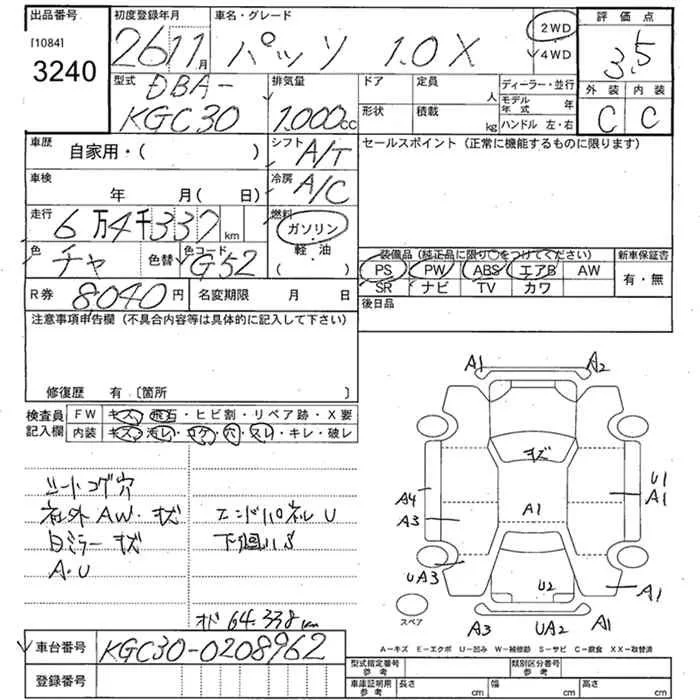 出品番号
[1084]
3240
初度登録年月
26 11月
車名・グレード
パッソ 1.0X
2WD
4WD
評価点
3.5
外装 内装
C C
型式
DBA-
KGC30
排気量
1.000cc
ドア 定員 人
形状 積載 kg
ディーラー・並行
モデル年式 年
ハンドル 左・右
車歴
自家用・( )
シフト
A/T
セールスポイント (正常に機能するものに限ります)
車検
年 月( 日)
冷房
A/C
走行
6万4千337km
燃料
ガソリン
軽・油
( )
色
チャ
色替
色コード
G52
装備品(純正品に限り○をつけてください)
PS PW ABS エアB AW
SR ナビ TV カワ
新車保証書
有・無
R券 8040円
名変期限 月 日
後日品
注意事項申告欄 (不具合内容等は具体的に記入して下さい)
修復歴 有 〔箇所 〕
検査員記入欄
FW キズ・飛石・ヒビ割・リペア跡・X要
内装 キズ・汚レ・コゲ・穴・スレ・キレ・破レ
シートコゲ穴
社外AW・キズ
ミラーキズ
A・U
エンドパネルU
下廻りS
64.338km
A1
A2
キズ
A4
A3
A1
U1
A1
UA3
U2
A1
スペア
A3
UA2
A1
A－キズ E－エクボ U－凹み W－補修跡 S－サビ C－腐食 XX－取替済
車台番号 KGC30-0208962
登録番号
型式指定番号
参考
類別区分番号
参考
車庫証明用
参考
長さ cm 幅 cm 高さ cm